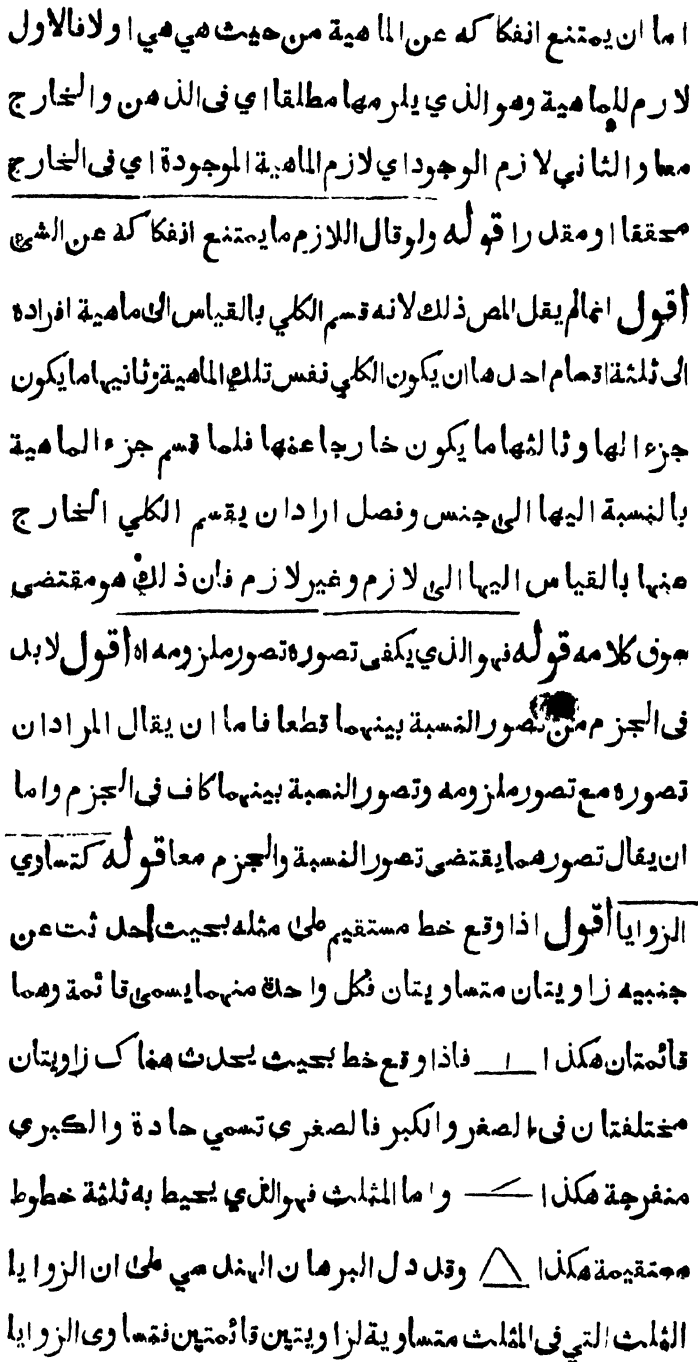 اما ان يمتنع انفكاكه عن الماهية من حيث هي هي اولا فالاول
لازم للماهية وهو الذي يلزمها مطلقا اي فى الذهن والخارج
معا والثاني لازم الوجود اي لازم الماهية الموجودة اي فى الخارج
محققا او مقدرا قوله ولو قال اللازم ما يمتنع انفكاكه عن الشئ
أقول انما لم يقل المص ذلك لانه قسم الكلي بالقياس الى ماهية افراده
الى ثلثة اقسام احدها ان يكون الكلي نفس تلك الماهية وثانيها ما يكون
جزءا لها وثالثها ما يكون خارجا عنها فلما قسم جزء الماهية
بالنسبة اليها الى جنس وفصل اراد ان يقسم الكلي الخارج
عنها بالقياس اليها الى لازم وغير لازم فان ذلك هو مقتضى
سوق كلامه قوله فهو الذي يكفى تصوره تصور ملزومه اه أقول لابد
فى الجزم من تصور النسبة بينهما قطعا فاما ان يقال المراد ان
تصوره مع تصور ملزومه وتصور النسبة بينهما كاف فى الجزم واما
ان يقال تصورهما يقتضى تصور النسبة والجزم معا قوله كتساوي
الزوايا أقول اذا وقع خط مستقيم على مثله بحيث احدثت عن
جنبيه زاويتان متساويتان فكل واحدة منهما يسمى قائمة وهما
قائمتان هكذا فاذا وقع خط بحيث يحدث هناك زاويتان
مختلفتان فى الصغر والكبر فالصغرى تسمي حادة والكبري
منفرجة هكذا واما المثلث فهو الذي يحيط به ثلثة خطوط
مستقيمة هكذا وقد دل البرهان الهندسي على ان الزوايا
الثلث التي فى المثلث متساوية لزاويتين قائمتين فتساوى الزوايا